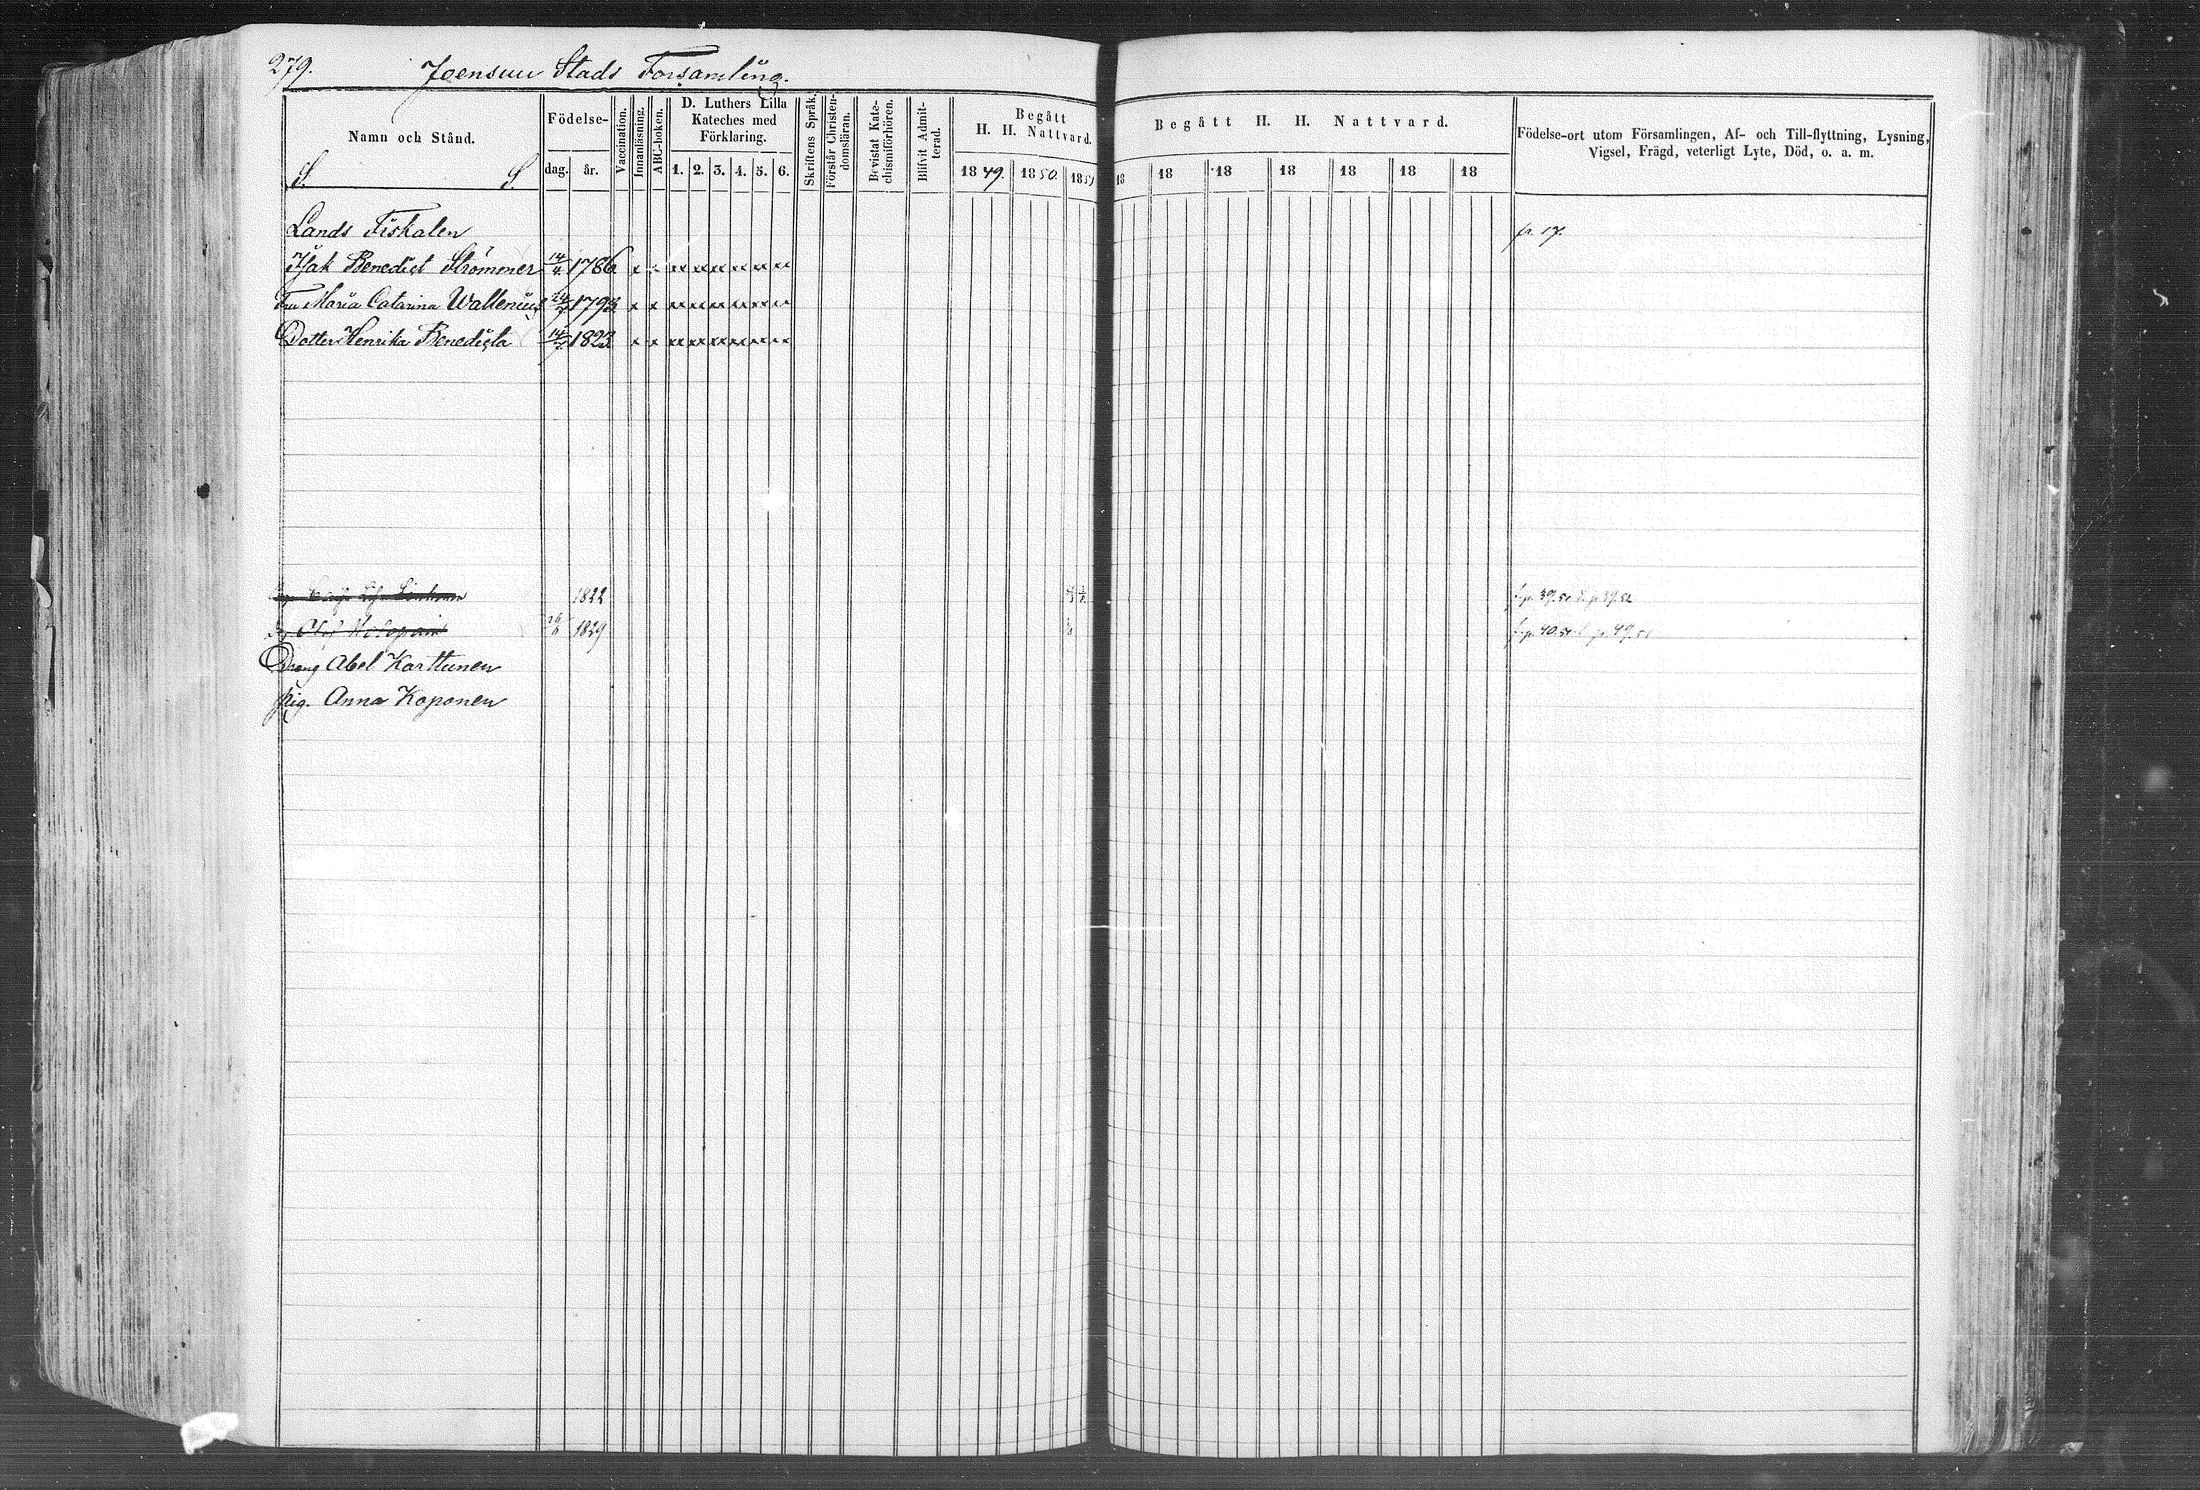 279. Joensuu Stads Församling.
Namn och Stånd.
S. S.
Födelse-
dag. år.
Vaccination.
Innanläsning.
ABC-boken.
D. Luthers Lilla
Kateches med
Förklaring.
1. 2. 3. 4. 5. 6.
Skriftens Språk.
Förstår Christen-
domsläran.
Bevistat Kate-
chismiförhören.
Blifvit Admit-
terad.
Begått
H. H. Nattvard.
1849. 1850. 1851
Begått H. H. Nattvard.
18 18 18 18 18 18 18
Födelse-ort utom Församlingen, Af- och Till-flyttning, Lysning,
Vigsel, Frägd, veterligt Lyte, Död, o. a. m.
Lands Fiskalen fr. 17.
Isak Benedict Strömmer 14/4 1786
Fru Maria Catarina Wallenius 1793
Dotter Henrika Benedicta 14/7 1823
1822
1829
Dräng Abel Karttunen
Pig. Anna Koponen